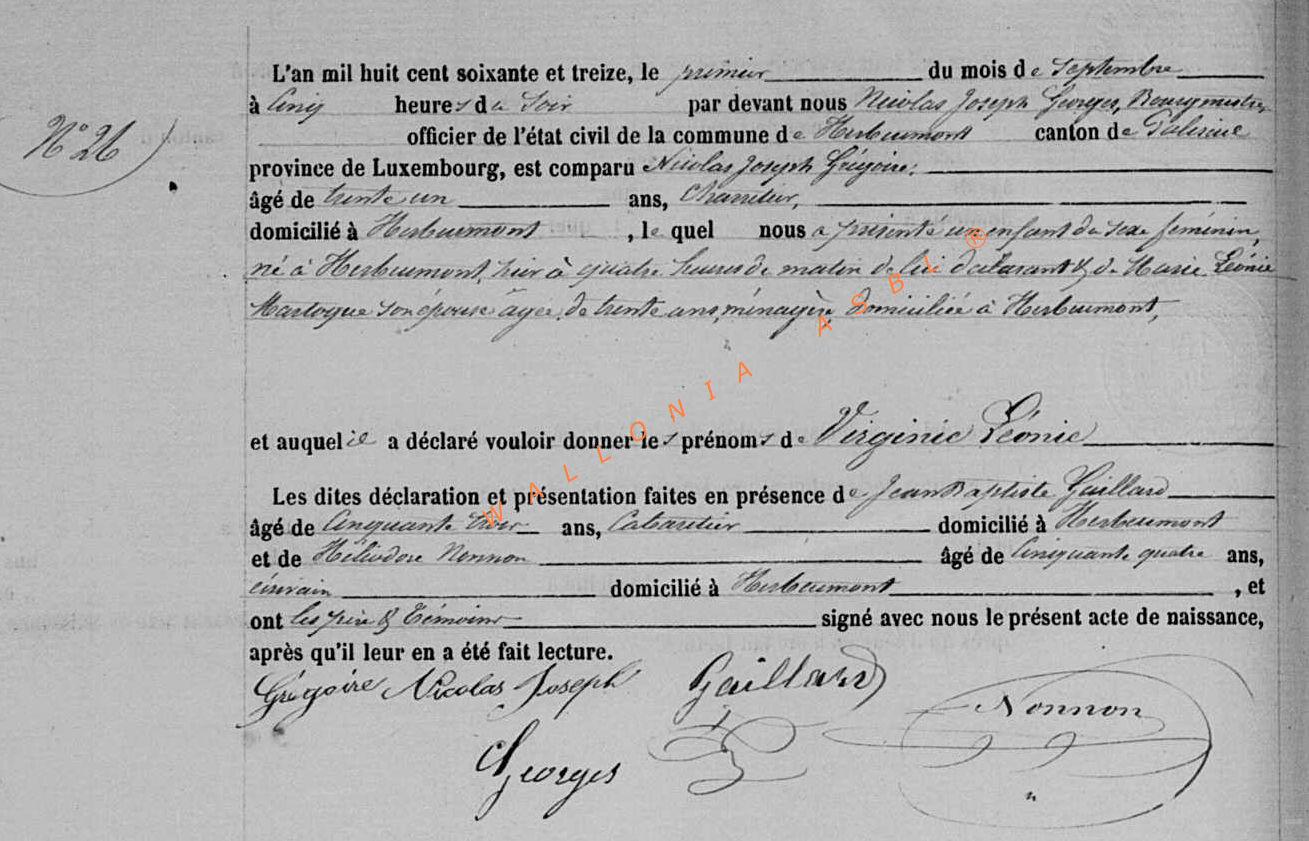 N° 26
L'an mil huit cent soixante et treize, le premier du mois de Septembre
à Cinq heures du Soir par devant nous Nicolas Joseph Georges, Bourgmestre,
officier de l'état civil de la commune de Herbeumont canton de Paliseul
province de Luxembourg, est comparu Nicolas Joseph Grégoire,
âgé de trente un ans, Charretier,
domicilié à Herbeumont, le quel nous a présenté un enfant du sexe féminin,
né à Herbeumont, hier à quatre heures de matin de lui déclarant & de Marie Léonie
Martogue son épouse âgée de trente ans, ménagère, domiciliée à Herbeumont,
et auquel il a déclaré vouloir donner les prénoms de Virginie Léonie
Les dites déclaration et présentation faites en présence de Jean Baptiste Gaillard
âgé de Cinquante trois ans, Cabaretier domicilié à Herbeumont
et de Héliodore Nonnon âgé de Cinquante quatre ans,
domicilié à Herbeumont, et
ont les père & témoins signé avec nous le présent acte de naissance,
après qu'il leur en a été fait lecture.
Grégoire Nicolas Joseph Gaillard Nonnon
Georges
WALLONIA ASBL ®